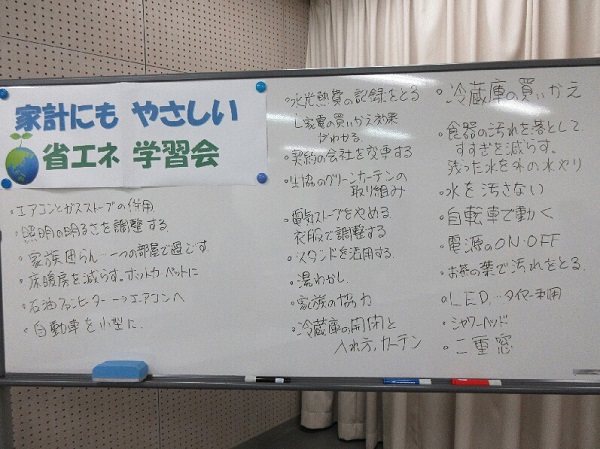 家計にも やさしい
省エネ 学習会
・エアコンとガスストーブの併用
・照明の明るさを調整する
・家族団らん…一つの部屋で過ごす
・床暖房を減らす。ホットカーペットに
・石油ファンヒーター→エアコンへ
・自動車を小型に
・水光熱費の記録をとる
└家電の買いかえ効果
がわかる
・契約の会社を変更する
・生協のグリーンカーテンの
取り組み
・電気ストーブをやめる
衣服で調整する
・スタンドを活用する
・湯わかし
・家族の協力
・冷蔵庫の開閉と
入れ方、カーテン
・冷蔵庫の買いかえ
・食器の汚れを落として
すすぎを減らす。
残った水を外の水やり
・水を汚さない
・自転車で動く
・電源のON・OFF
・お茶の葉で汚れをとる
・LED…タイマー利用
・シャワーヘッド
・二重窓